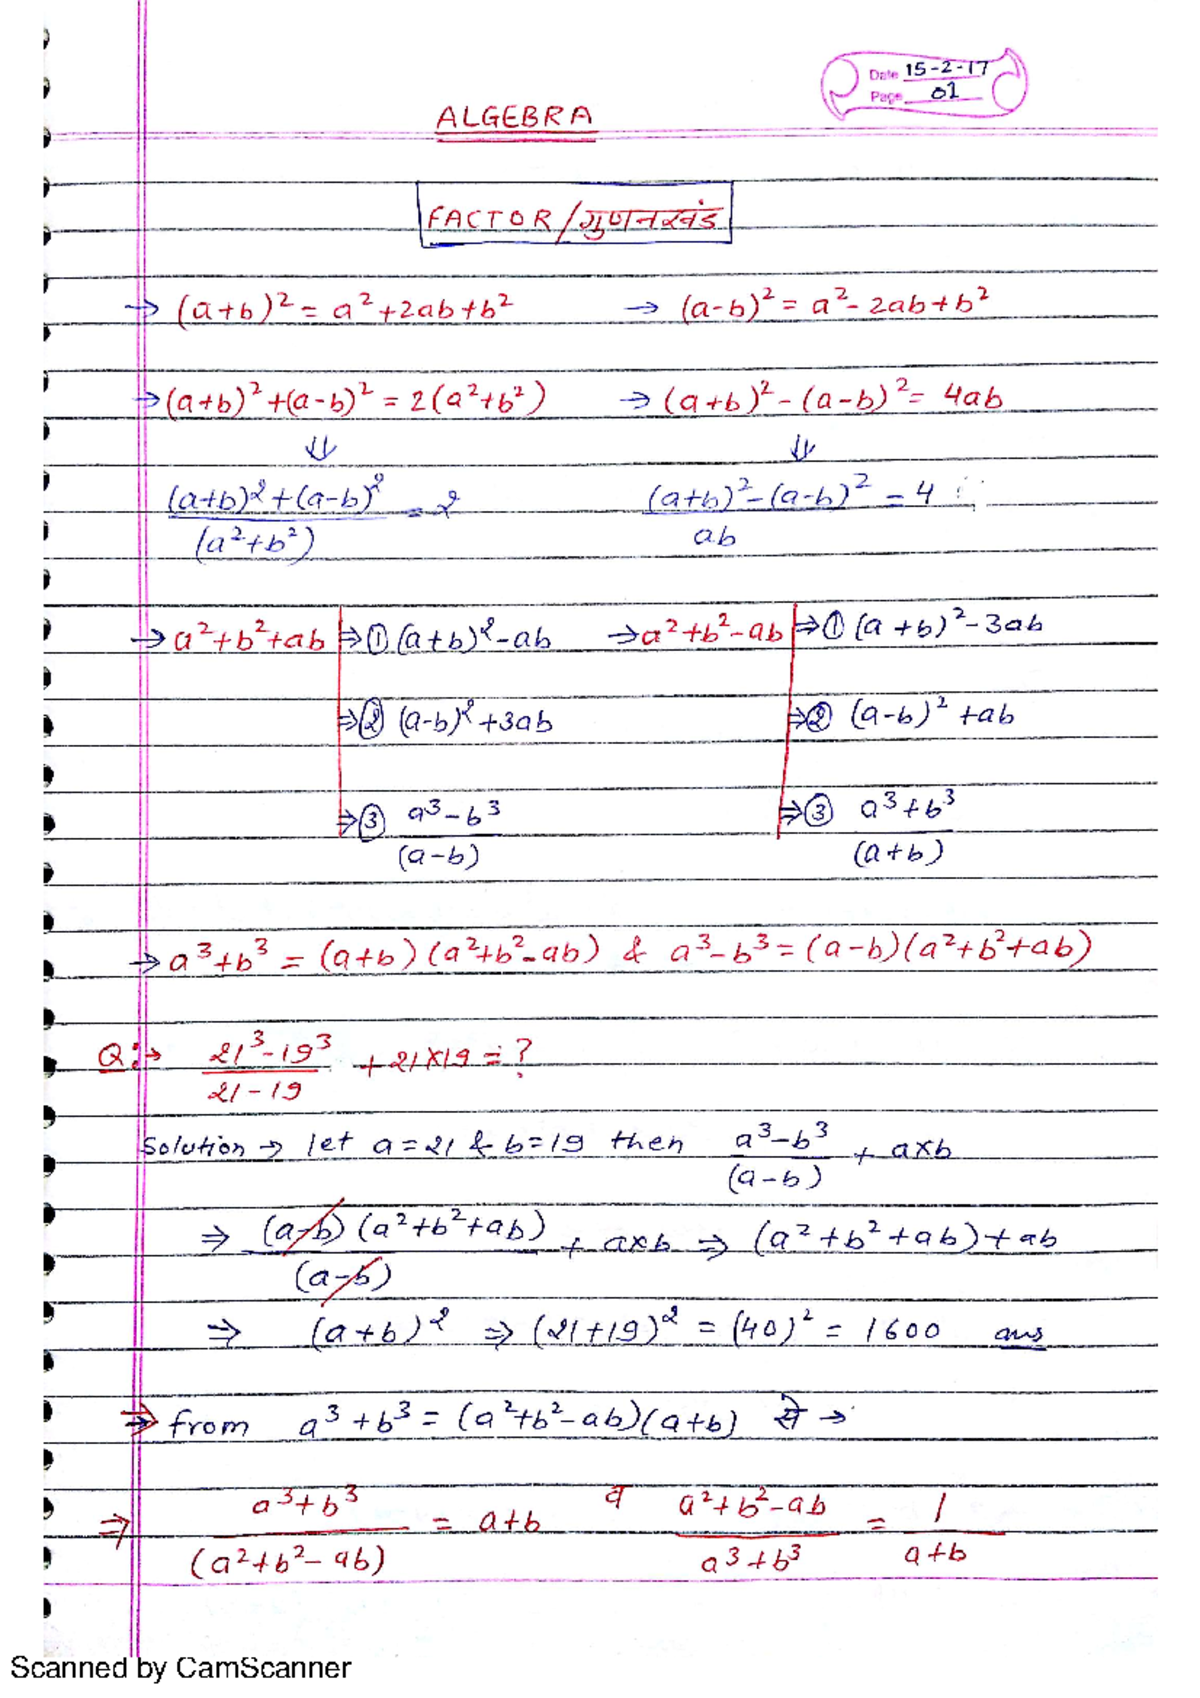 Date 15-2-17
Page 01
ALGEBRA
FACTOR/गुणनखंड
→ (a+b)² = a²+2ab+b² → (a-b)² = a²-2ab+b²
→ (a+b)²+(a-b)² = 2(a²+b²) → (a+b)²-(a-b)² = 4ab
⇓ ⇓
(a+b)²+(a-b)² = 2 (a+b)²-(a-b)² = 4
(a²+b²) ab
→ a²+b²+ab ⇒ ① (a+b)²-ab → a²+b²-ab ⇒ ① (a+b)²-3ab
⇒ ② (a-b)²+3ab ⇒ ② (a-b)²+ab
⇒ ③ a³-b³ ⇒ ③ a³+b³
(a-b) (a+b)
→ a³+b³ = (a+b)(a²+b²-ab) & a³-b³ = (a-b)(a²+b²+ab)
Q:→ 21³-19³ + 21×19 = ?
21-19
Solution → let a=21 & b=19 then a³-b³ + a×b
(a-b)
⇒ (a-b)(a²+b²+ab) + a×b ⇒ (a²+b²+ab)+ab
(a-b)
⇒ (a+b)² ⇒ (21+19)² = (40)² = 1600 ans
⇒ from a³+b³ = (a²+b²-ab)(a+b) से →
⇒ a³+b³ = a+b व a²+b²-ab = 1
(a²+b²-ab) a³+b³ a+b
Scanned by CamScanner